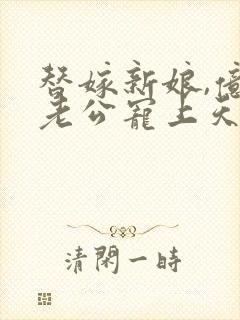 替嫁新娘,億
老公寵上天
清閑一時